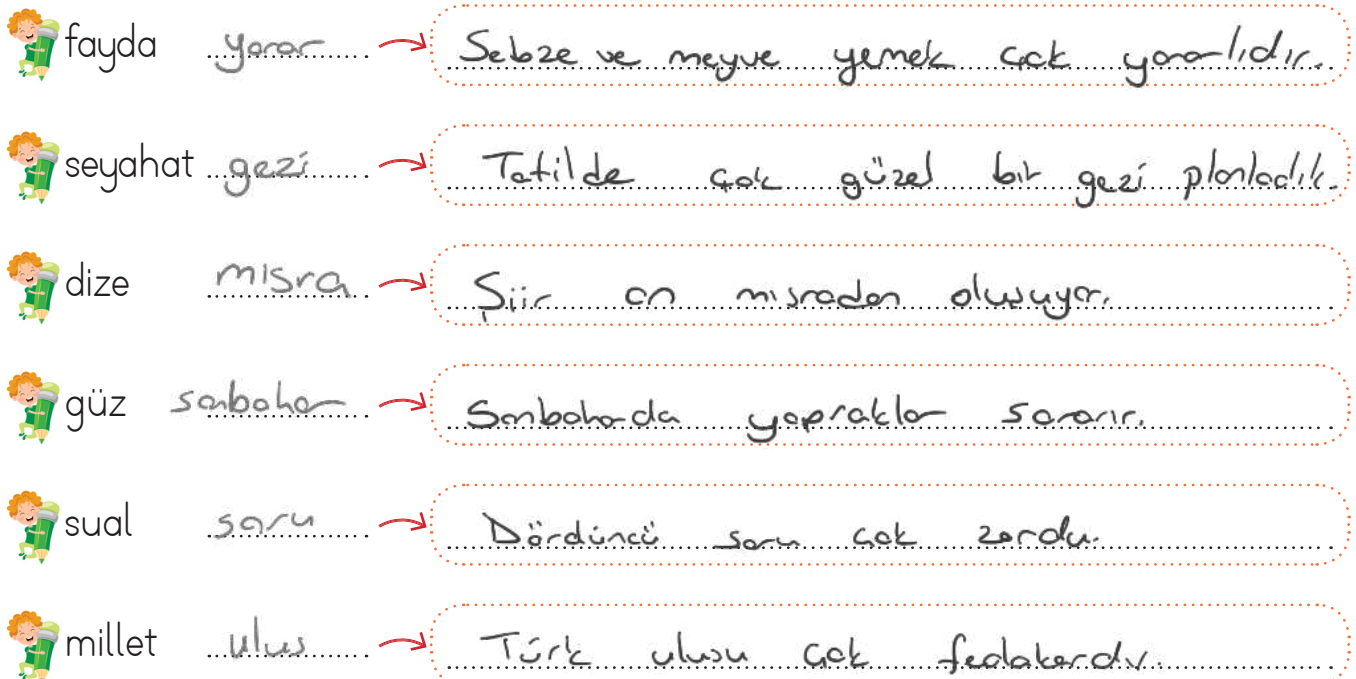 fayda yarar Sebze ve meyve yemek çok yararlıdır.
seyahat gezi Tatilde çok güzel bir gezi planladık.
dize mısra Şiir on mısradan oluşuyor.
güz sonbahar Sonbaharda yapraklar sararır.
sual soru Dördüncü soru çok zordu.
millet ulus Türk ulusu çok fedakardır.